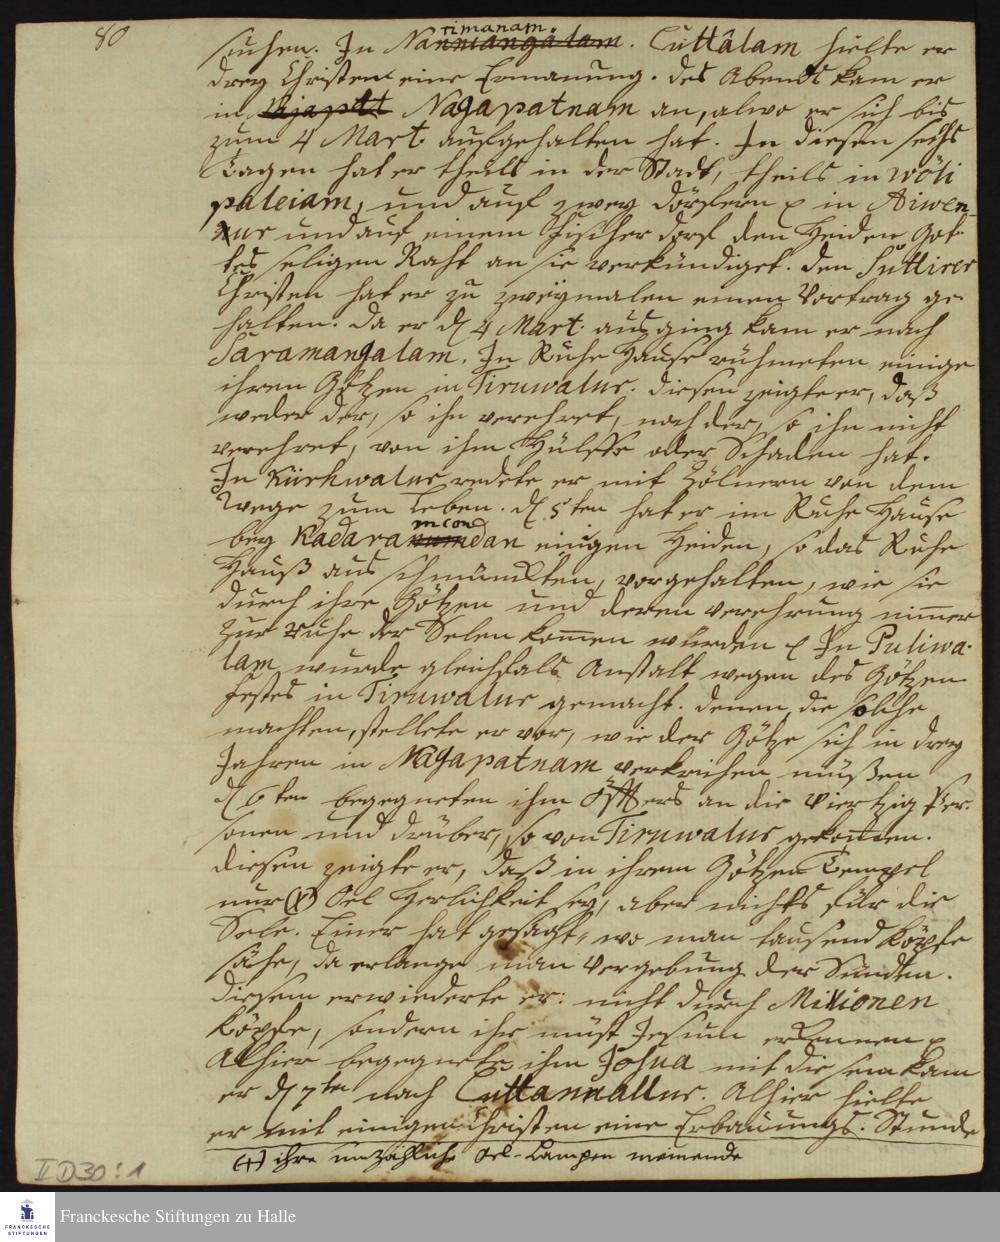 80
suchen. In Nantimanam. Cuttâlam hielte er
drey Christen eine Ermanung. des Abends kam er
in Nagapatnam an, alwo er sich bis
zum 4 Mart. aufgehalten hat. In diesen sechs
Tagen hat er theils in der Stadt, theils in wöli
paleiam, und auf zwey Dörfern in Aiwen-
nur und auf einem Fischer dorf den Heiden Got-
tes seligen Raht an sie verkündiget. den Suttirer
Christen hat er zu zweymalen einen Vortrag ge-
halten. Da er d 4 Mart. ausging kam er nach
Saramangalam. In Ruhe Hause rühmeten einige
ihren Götzen in Tiruwalur. diesen zeigte er, daß
weder der, so ihn verehret, noch der, so ihn nicht
verehret, von ihm Hülffe oder Schaden hat.
In Kiirhwalur redete er mit Zölnern von dem
Wege zum Leben. d 5ten hat er im Ruhe Hause
bey Kadaramcondan einigen Heiden, so das Ruhe
Hauß aus schmückten, vorgehalten, wie sie
durch ihre Götzen und deren Verehrung nimer
zur Ruhe der Selen komen würden In Puliwa-
lam wurde gleichfals Anstalt wegen des Götzen
Festes in Tiruwalur gemacht. denen, die solche
machten, stellete er vor, wie der Götze sich in drey
Jahren in Nagapatnam verkrichen müßen
d 6ten begegneten ihm öffters an die viertzig Per-
sonen und drüber, so von Tiruwalur gekomen.
diesen zeigte er, daß in ihrem Götzen Tempel
nur (+) Oel Herlichkeit sey, aber nichts für die
Sele. Einer hat gesagt, wo man tausend Köpfe
sähe, da erlange man Vergebung der Sünden.
diesem erwiederte er: nicht durch Millionen
Köpfe, sondern ihr müst Jesum erkennen
Alhier begegnete ihm Josua mit diesem kam
er d 7ten nach Cuttanallur. Alhier hielte
er mit einigen Christen eine Erbauungs-Stunde
(+) ihre unzähliche Oel-Lampen meinende
II D30:1
FRANCKESCHE
STIFTUNGEN
Franckesche Stiftungen zu Halle